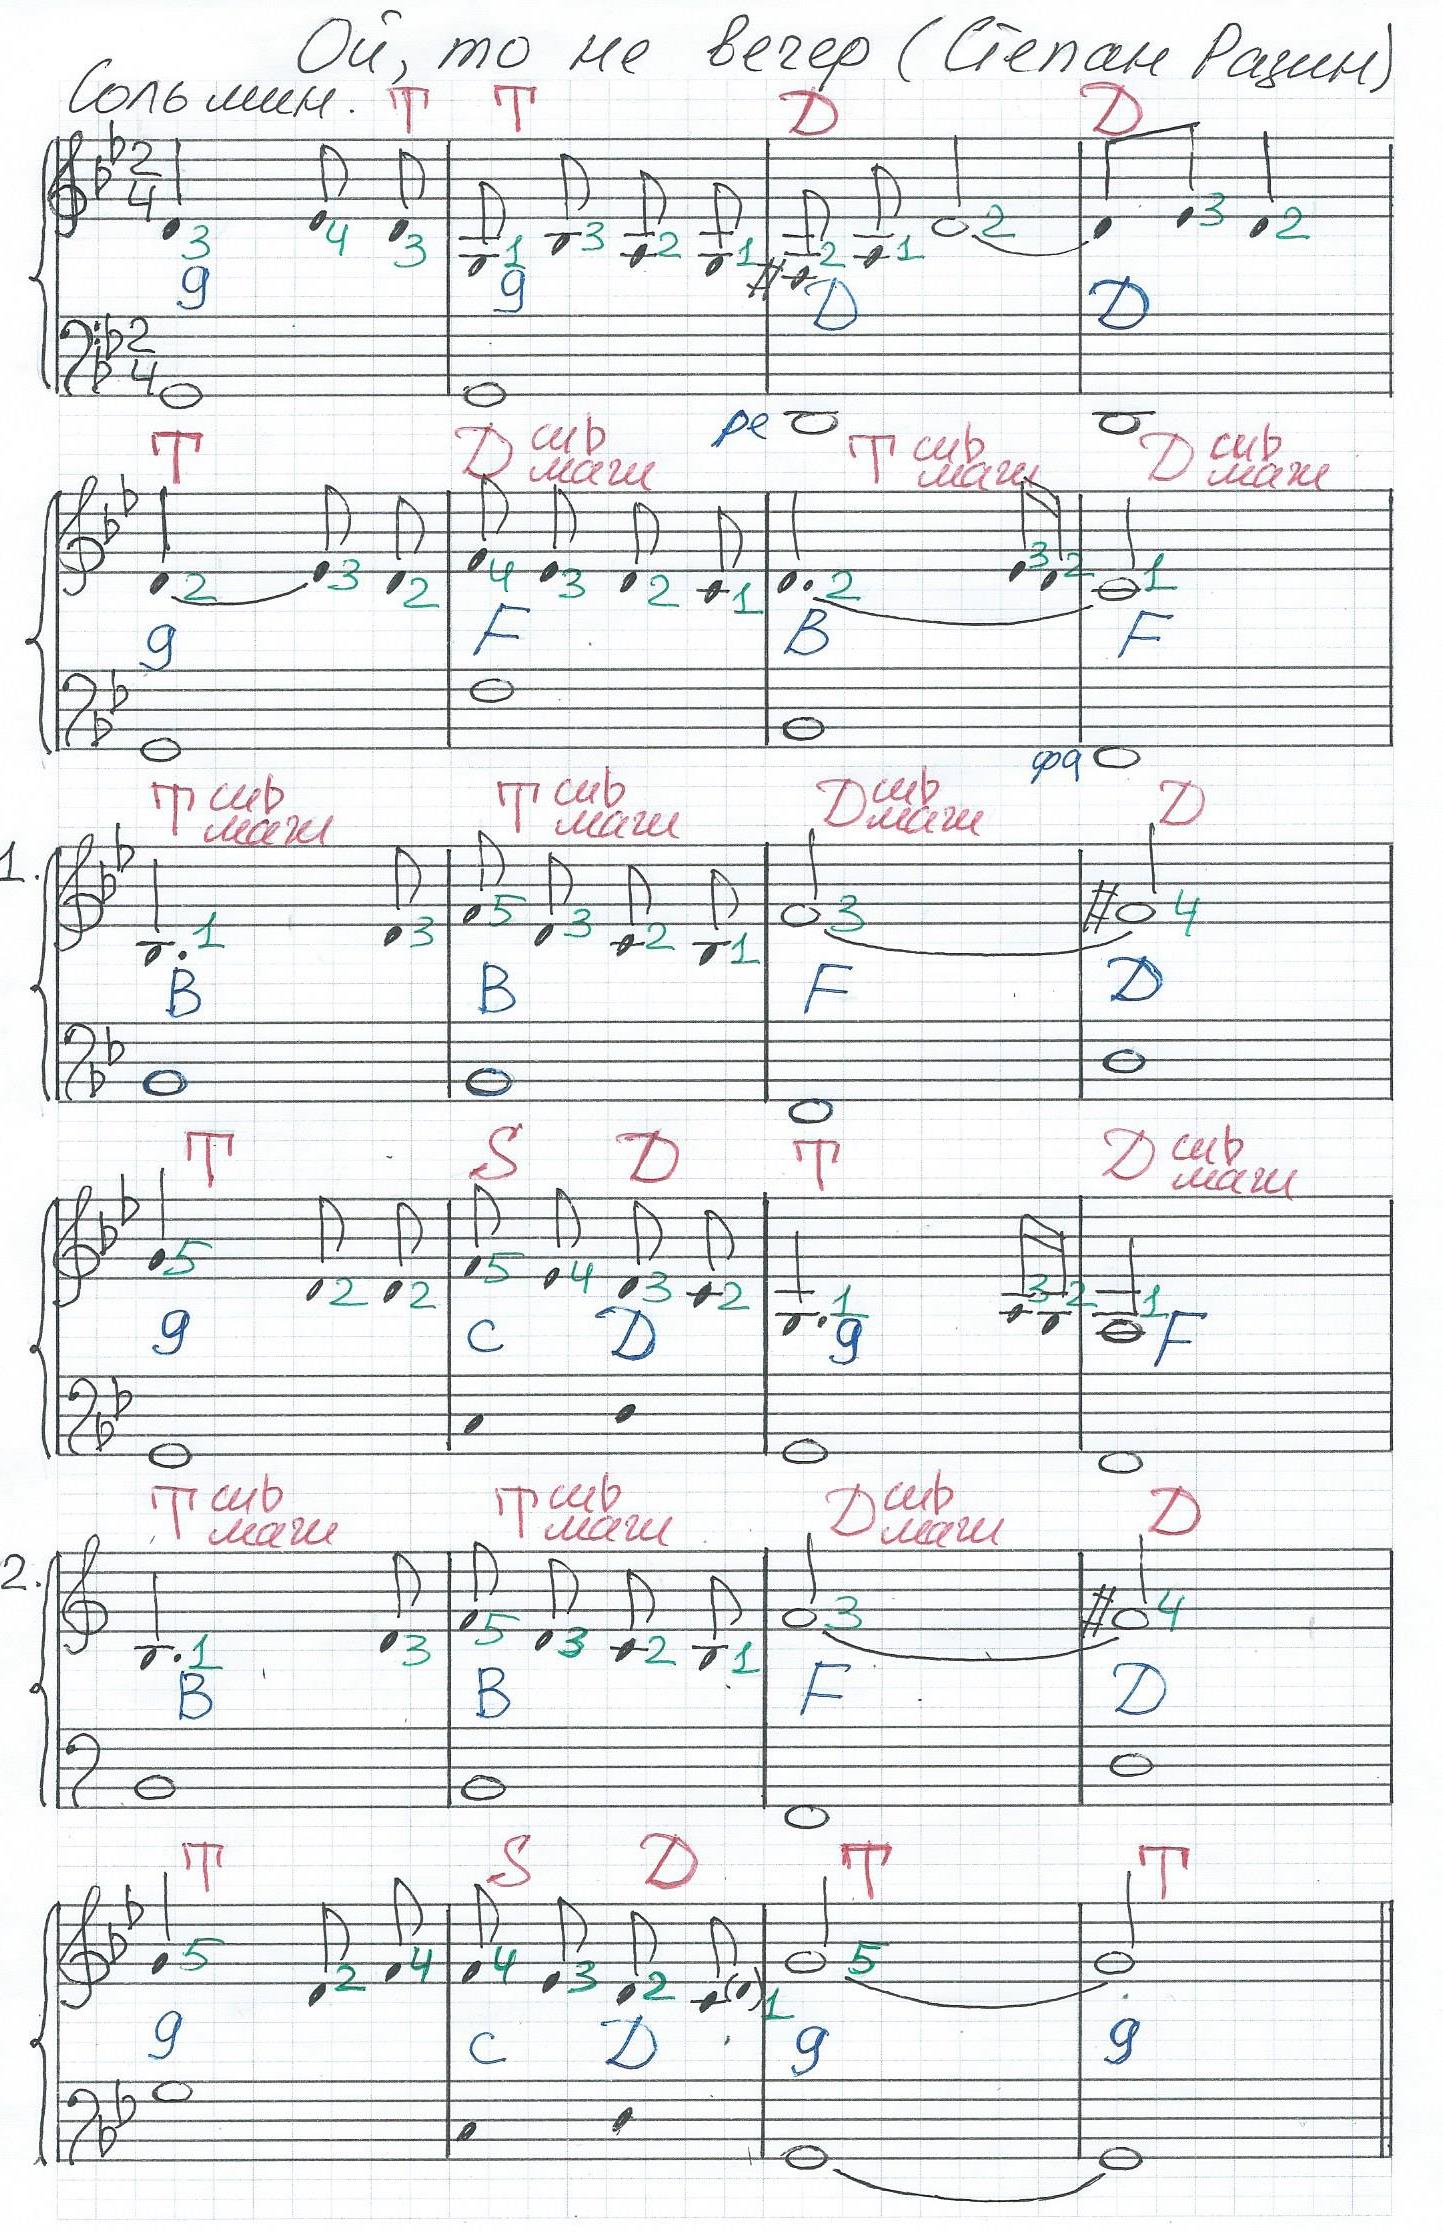 Ой, то не вечер (Степан Разин)
Соль мин. Т Т D D
2 4
3 4 3 1 3 2 1 2 1 2 3 2
g g D D
2 4
ре
Т D сиb маж Т сиb маж D сиb маж
2 3 2 4 3 2 1 2 3 2 1
g F B F
фа
Т сиb маж Т сиb маж D сиb маж D
1.
1 3 5 3 2 1 3 4
B B F D
Т S D Т D сиb маж
5 2 2 5 4 3 2 1 3 2 1
g c D g F
Т сиb маж Т сиb маж D сиb маж D
2.
1 3 5 3 2 1 3 4
B B F D
Т S D Т Т
5 2 4 4 3 2 1 5
g c D g g